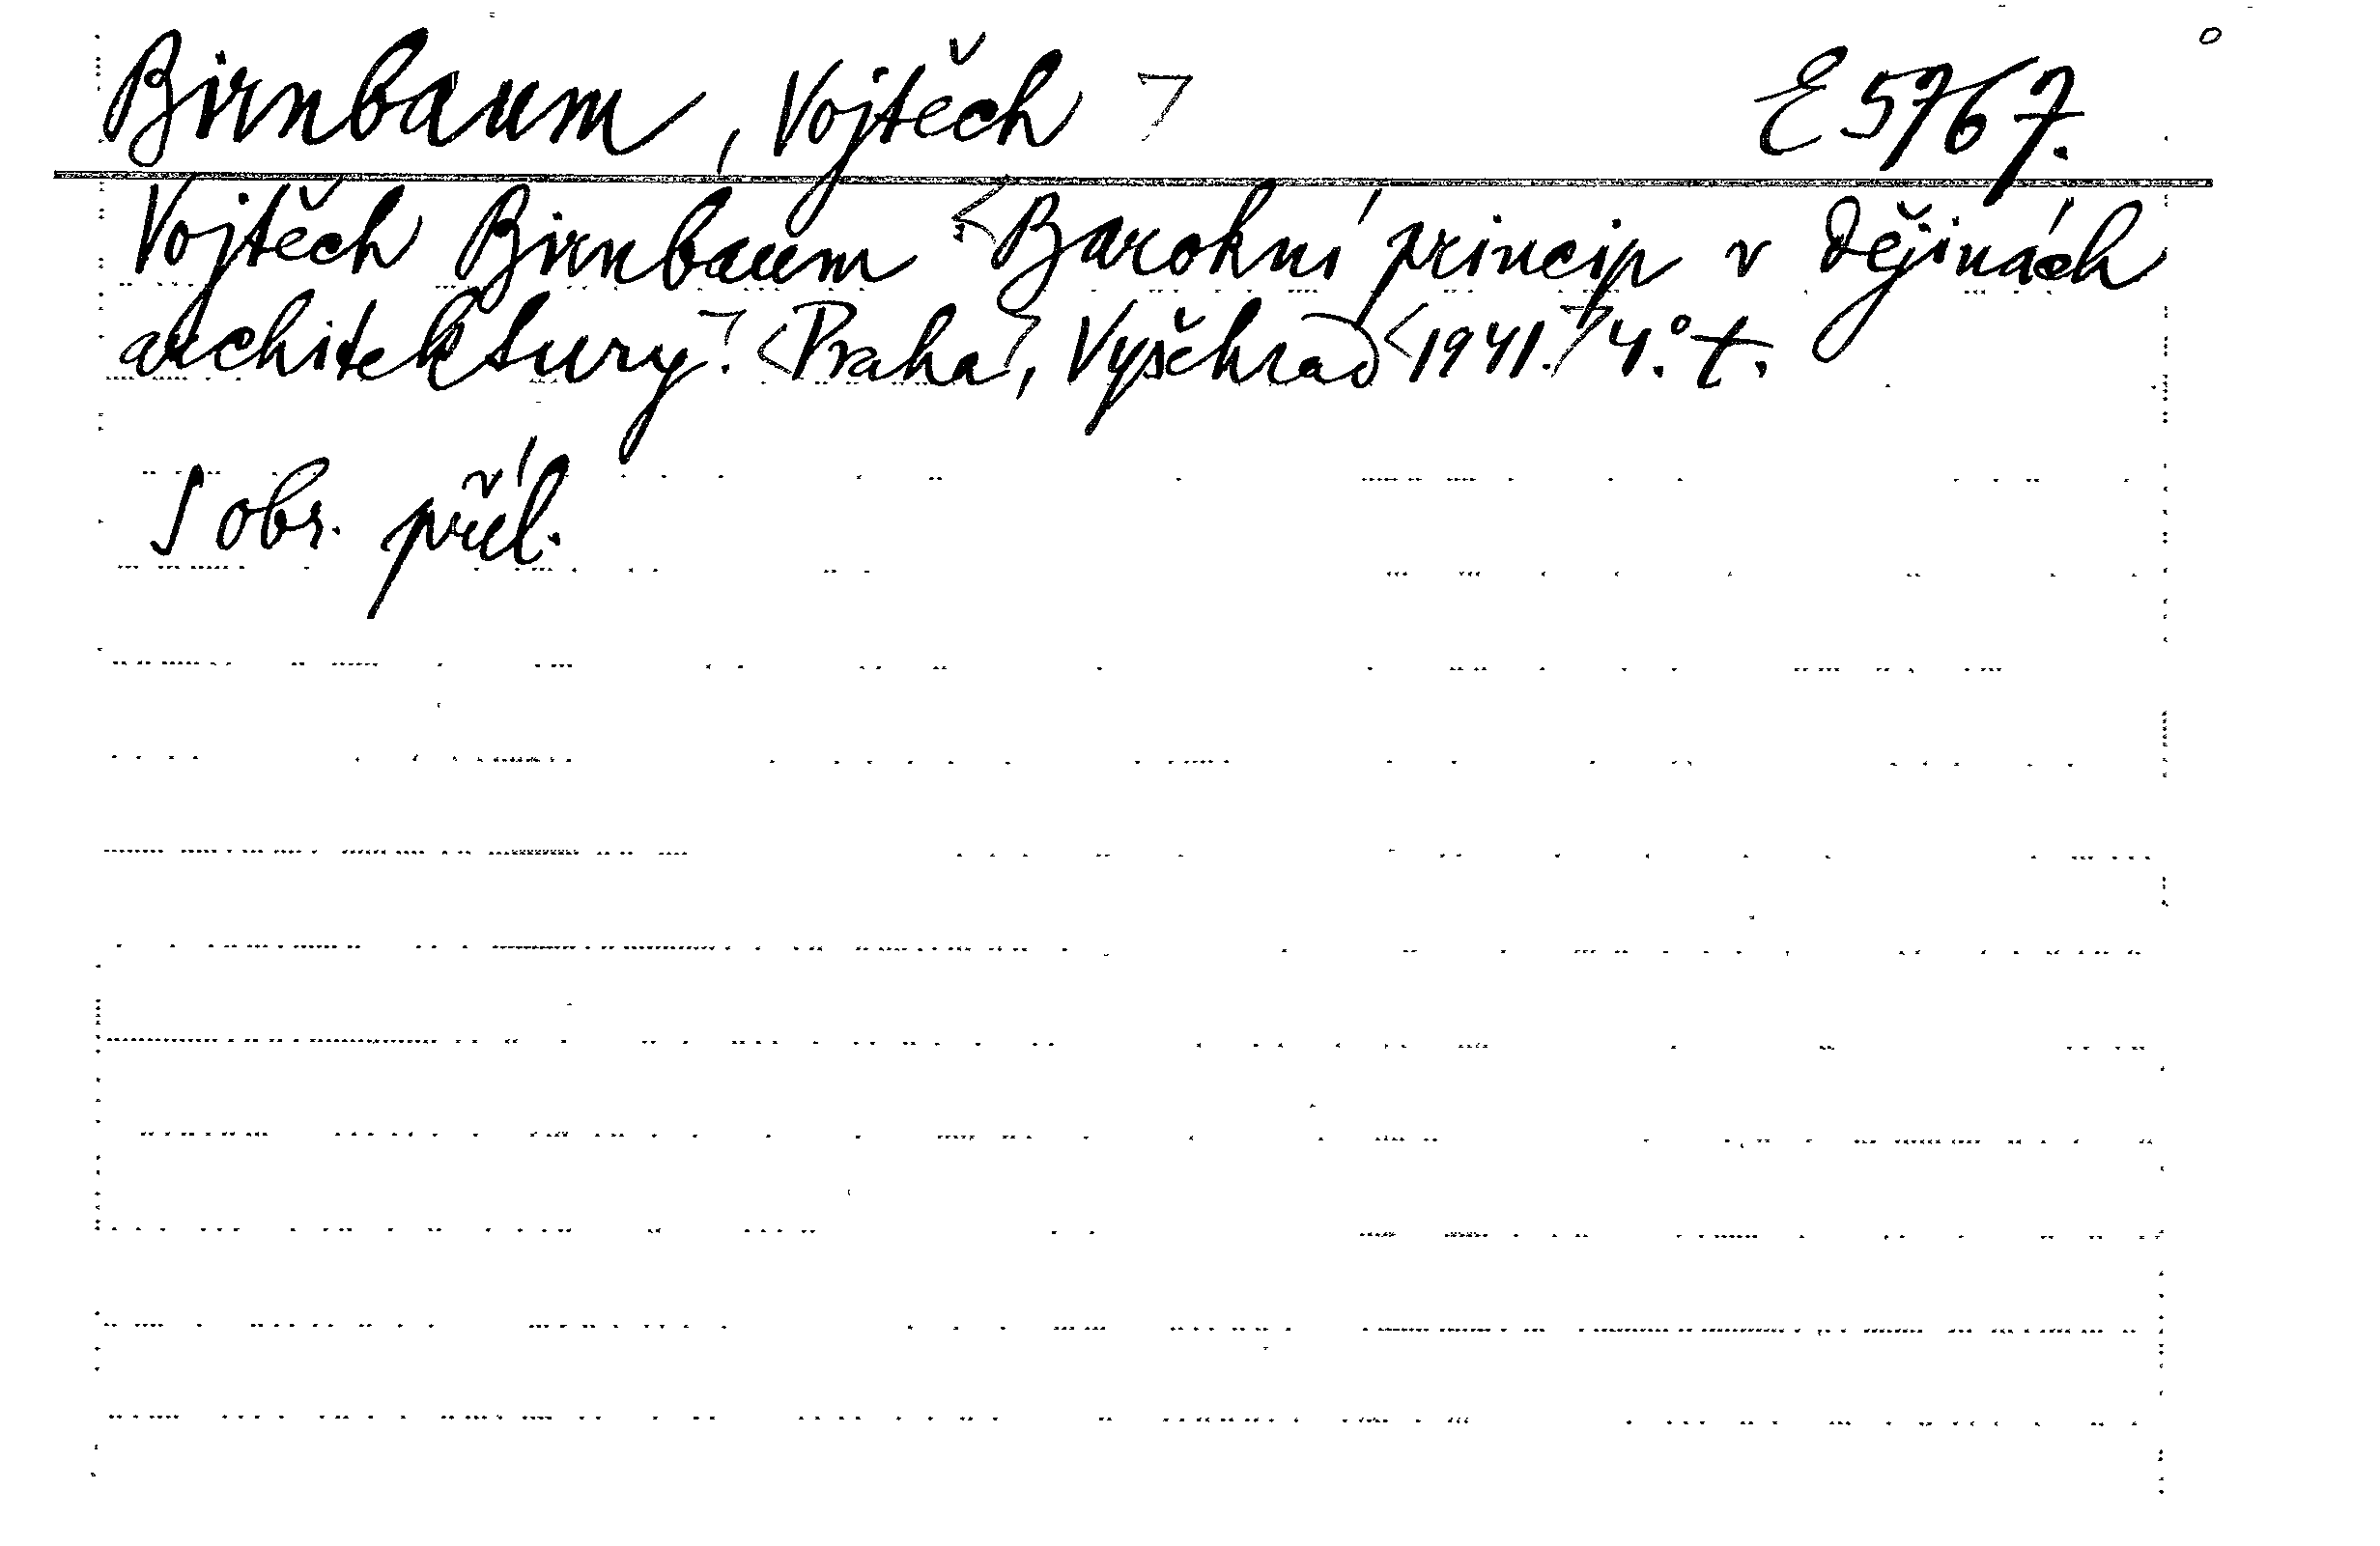 Birnbaum, Vojtěch ⌉ E 5767.
Vojtěch Birnbaum <Barokní princip v dějinách
architektury⌉. <Praha⌉, Vyšehrad <1941.⌉ 4.° t.
S obr. příl.